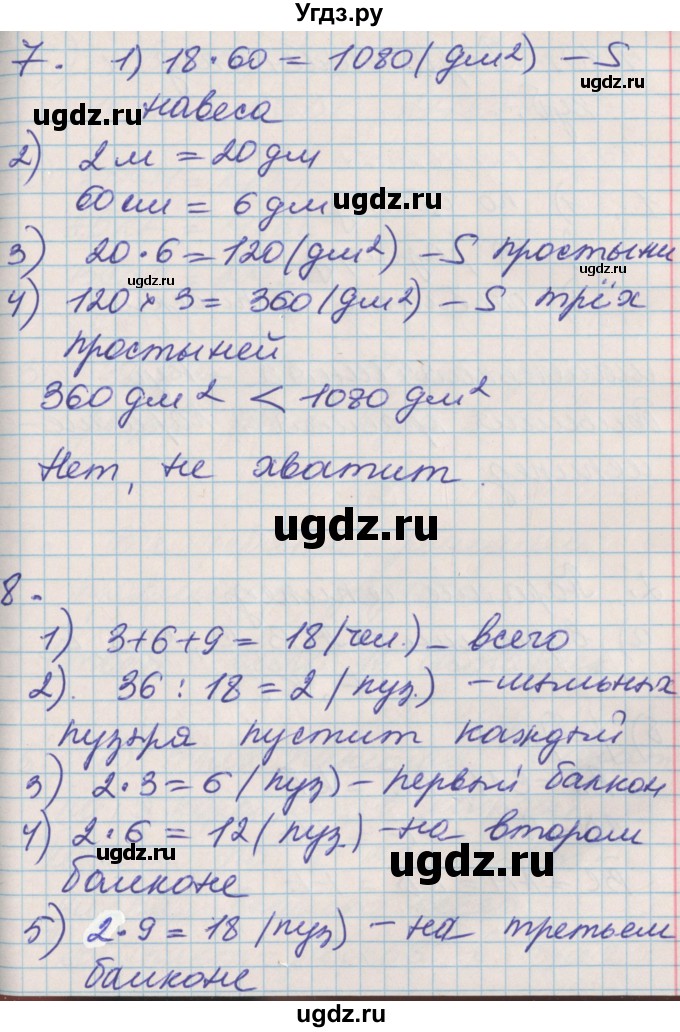 Угдз.ру
7. 1) 18·60 = 1080 (дм2) – S
ugdz.ru
ugdz.ru
навеса
2) 2 м = 20 дм
ugdz.ru
60 см = 6 дм
3) 20·6 = 120 (дм2) – S простыни
ugdz.ru
ugdz.ru
4) 120 × 3 = 360 (дм2) – S трёх
простыней
360 дм2 < 1080 дм2
Нет, не хватит.
ugdz.ru
8.
1) 3+6+9 = 18 (чел.) – всего
2). 36 : 18 = 2 (пуз.) – мыльных
пузыря пустит каждый
3) 2·3 = 6 (пуз) – первый балкон
4) 2·6 = 12 (пуз.) – на втором
ugdz.ru
ugdz.ru
балконе
5) 2·9 = 18 (пуз) – на третьем
ugdz.ru
балконе
ugdz.ru